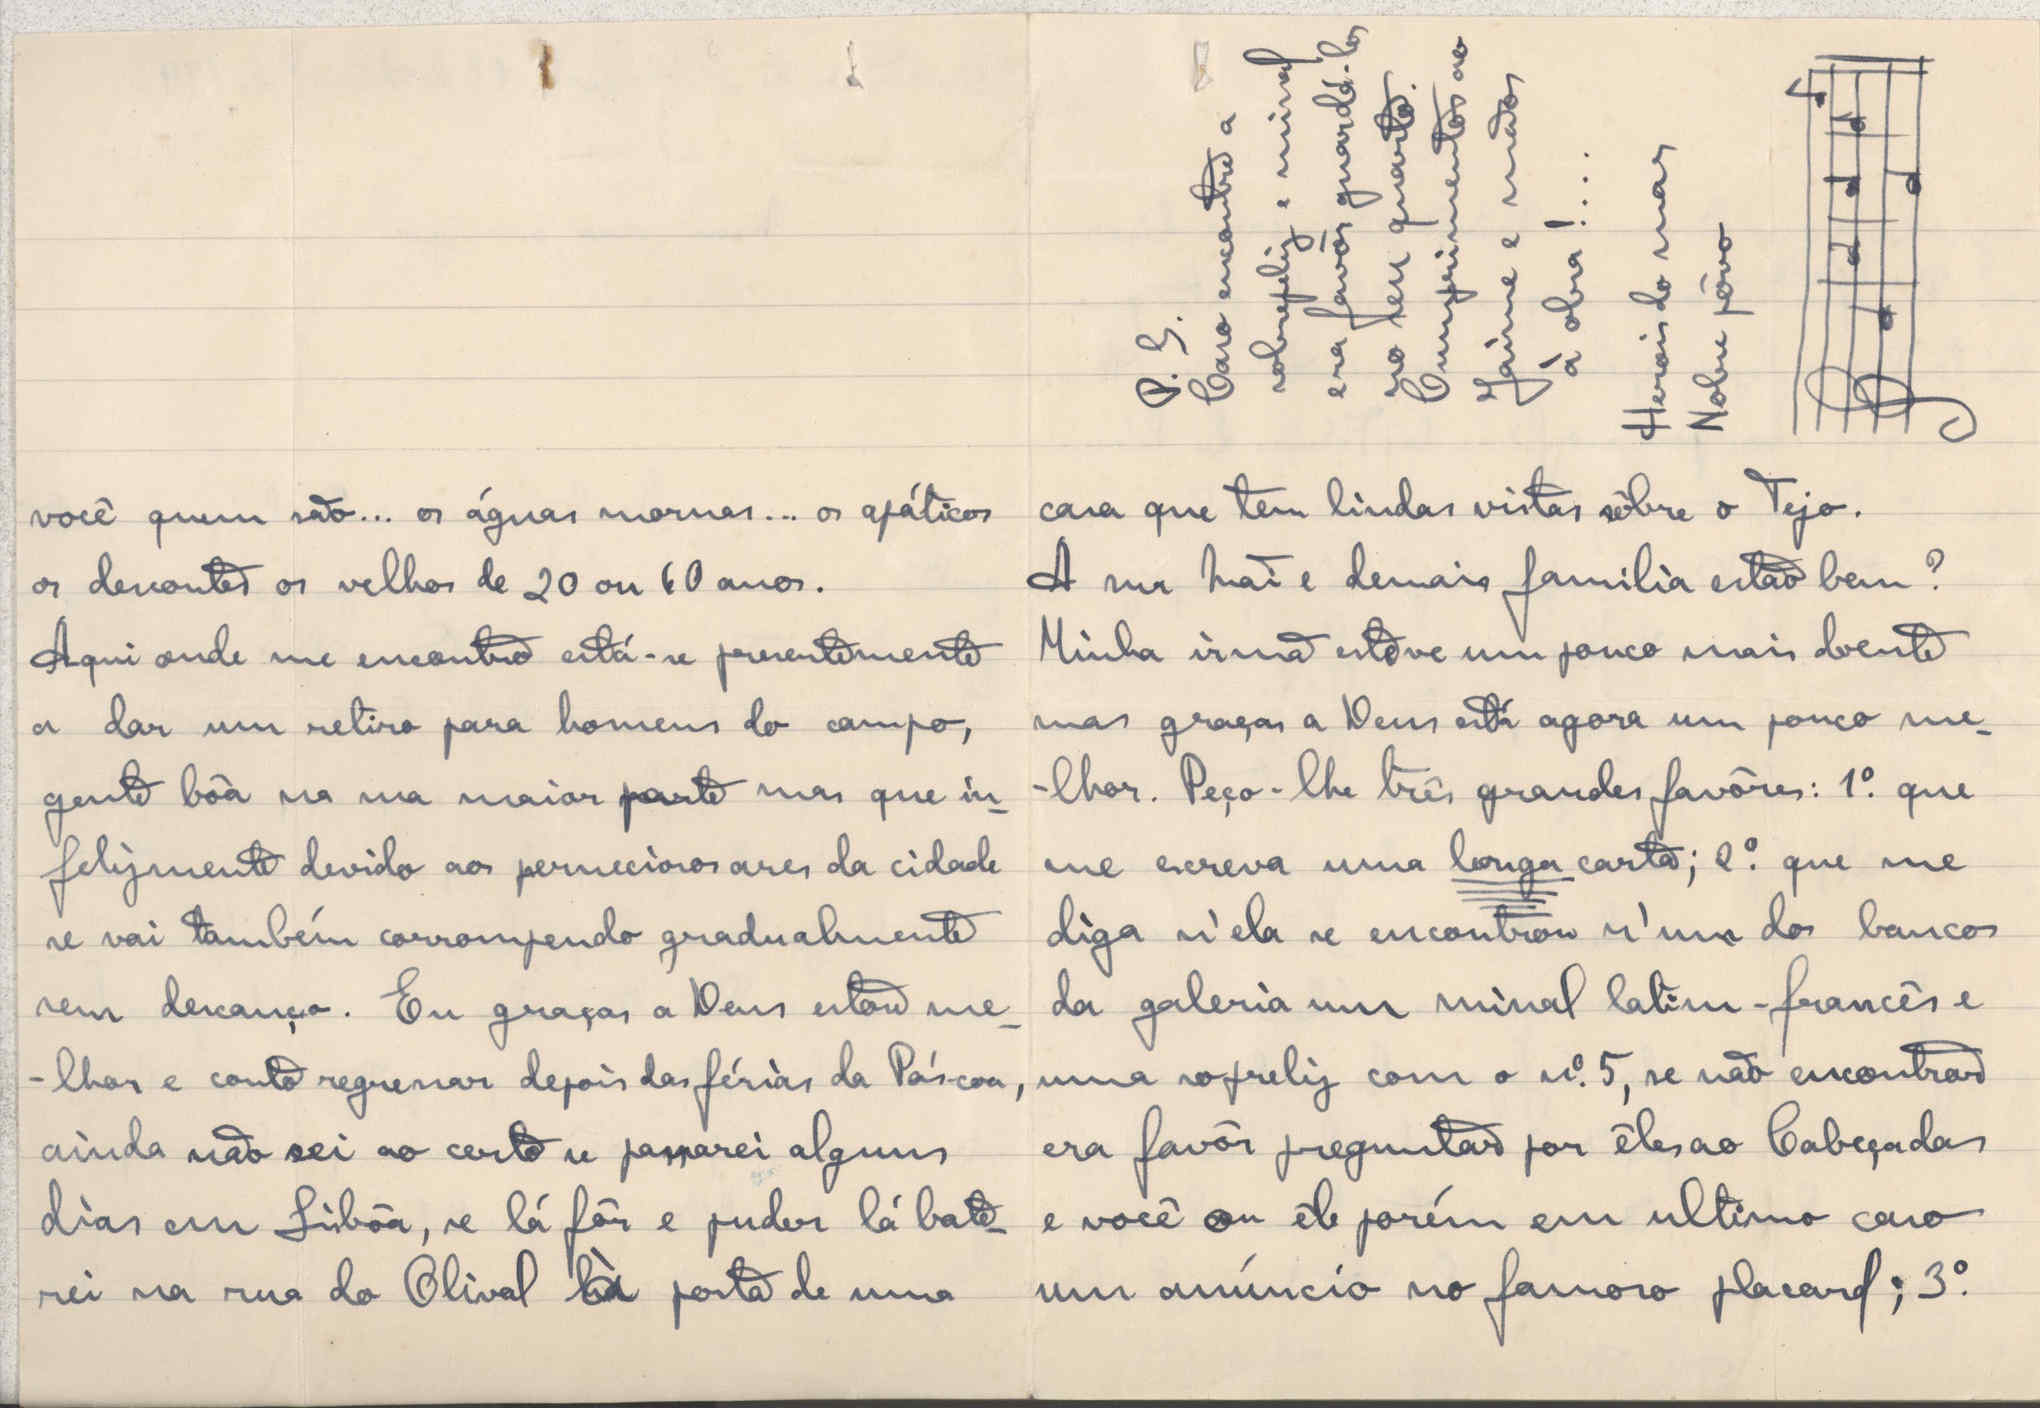 você quem são... os águas mornas... os apáticos
os descontes os velhos de 20 ou 60 anos.
Aqui onde me encontro está-se presentemente
a dar um retiro para homens do campo,
gente bôa na sua maior parte mas que in-
felizmente devido aos perneciosos ares da cidade
se vai também corrompendo gradualmente
sem descanço. Eu graças a Deus estou me-
-lhor e conto regressar depois das férias da Páscoa,
ainda não sei ao certo se passarei alguns
dias em Lisbôa, se lá fôr e puder lá bate-
rei na rua do Olival à porta de uma
P.S.
Caso encontre a
sobrepeliz e missal
era favôr guardá-los
no seu quarto.
Cumprimentos ao
Jaime e mãos
à obra!...
Herois do mar
Nobre pôvo
casa que tem lindas vistas sôbre o Tejo.
A sua Mãi e demais familia estão bem?
Minha irmã esteve um pouco mais doente
mas graças a Deus está agora um pouco me-
-lhor. Peço-lhe três grandes favôres: 1º. que
me escreva uma longa carta; 2º. que me
diga n'ela se encontrou n'um dos bancos
da galeria um missal latim-francês e
uma sopreliz com o nº. 5, se não encontrou
era favôr preguntar por êles ao Cabeçadas
e você ou êle porém em ultimo caso
um anúncio no famoso placard; 3º.